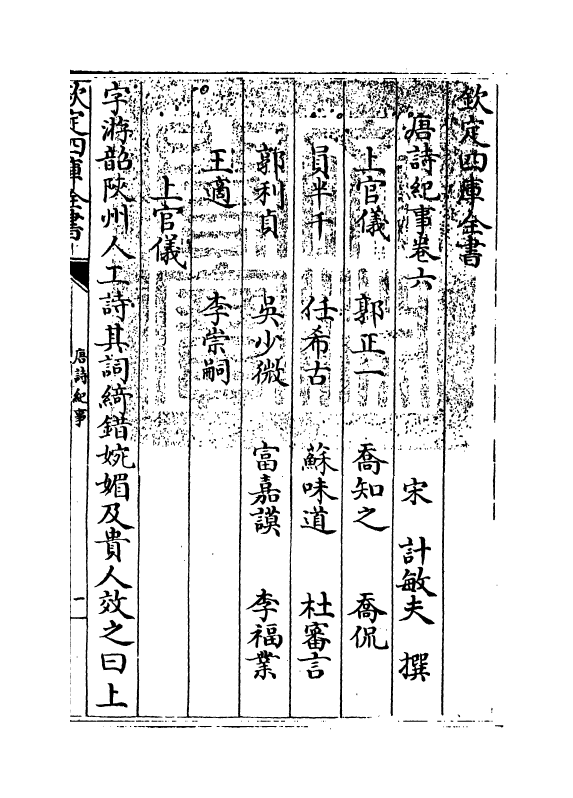 欽定四庫全書
唐詩紀事卷六
宋 計敏夫 撰
上官儀 郭正一 喬知之 喬侃
員半千 任希古 蘇味道 杜審言
郭利貞 吳少微 富嘉謨 李福業
王適 李崇嗣
上官儀
字游韶陝州人工詩其詞綺錯婉媚及貴人效之曰上
欽定四庫全書
唐詩紀事
一